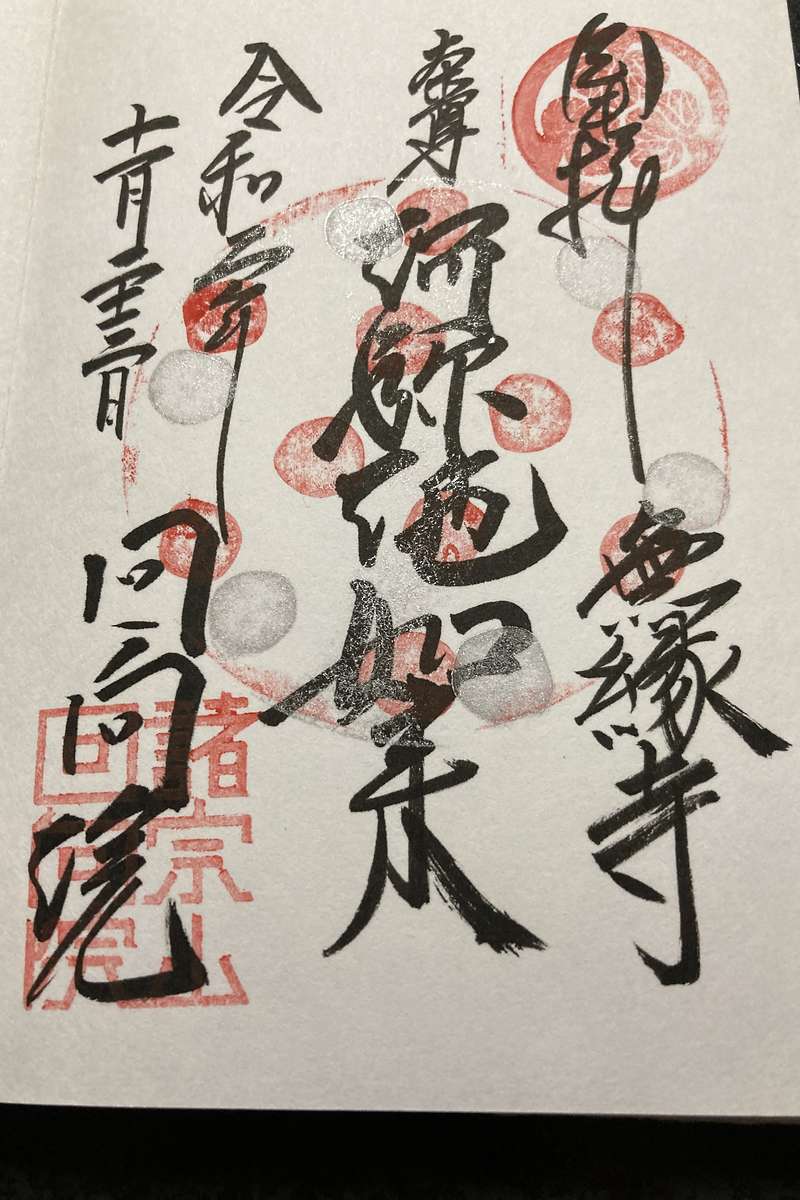 國技 無縁寺
本尊 阿弥陀如来
令和二年
十一月二十三日
回向院
諸宗山
回向院